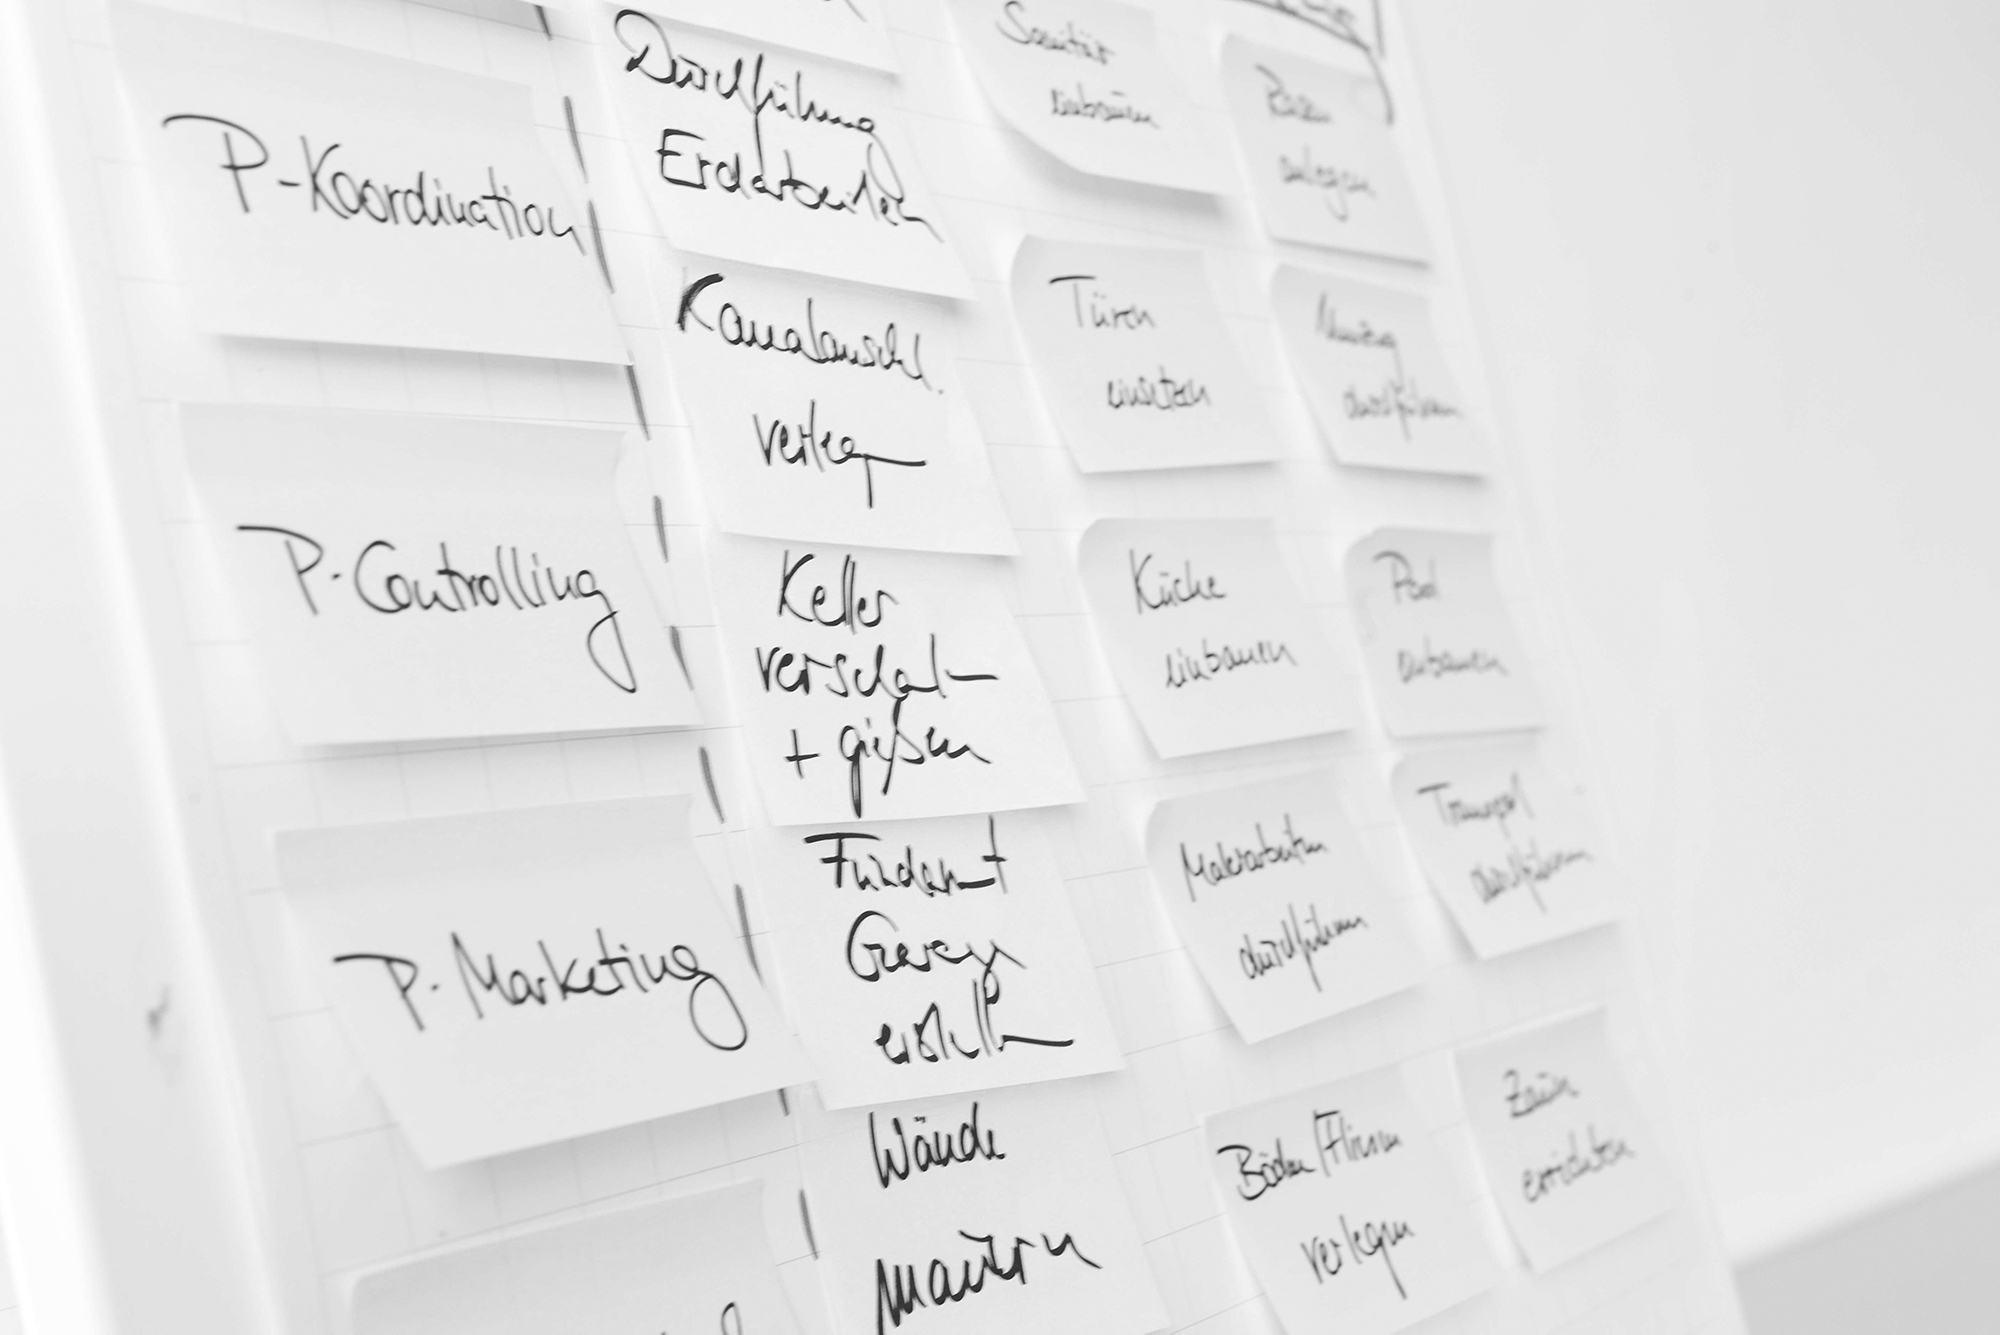 P-Koordination
P-Controlling
P-Marketing
Durchführung
Erdarbeiten
Kanalanschl.
verlegen
Keller
verschalen
+ gießen
Fundament
Garage
erstellen
Wände
mauern
Sanitär
einbauen
Türen
einsetzen
Küche
einbauen
Malerarbeiten
durchführen
Böden/Fliesen
verlegen
Rasen
anlegen
Umzug
durchführen
Pool
einbauen
Transport
durchführen
Zaun
errichten